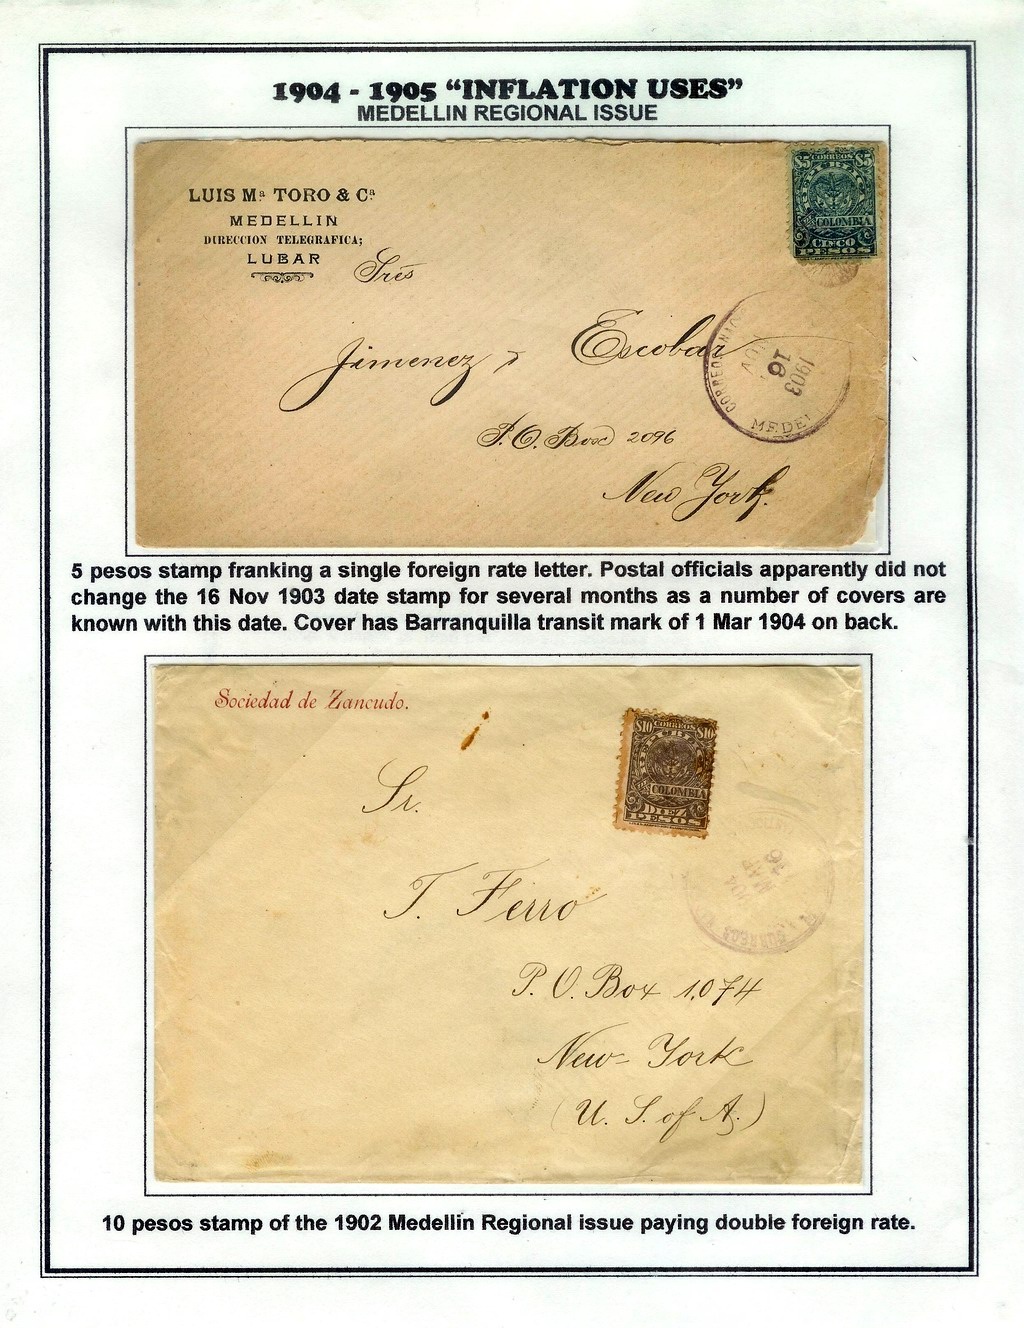 1904 - 1905 “INFLATION USES”
MEDELLIN REGIONAL ISSUE
LUIS Mª TORO & Cª
MEDELLIN
DIRECCION TELEGRAFICA;
LUBAR
$5 CORREOS $5
COLOMBIA
CINCO
PESOS
Sres
Jimenez y Escobar
CORREOS
NOV
16
1903
MEDEL
P.O. Box 2096
New York.
5 pesos stamp franking a single foreign rate letter. Postal officials apparently did not
change the 16 Nov 1903 date stamp for several months as a number of covers are
known with this date. Cover has Barranquilla transit mark of 1 Mar 1904 on back.
Sociedad de Zancudo.
$10 CORREOS $10
COLOMBIA
DIEZ
PESOS
Sr.
T. Ferro
P.O. Box 1,074
New-York
(U. S. of A.)
10 pesos stamp of the 1902 Medellin Regional issue paying double foreign rate.